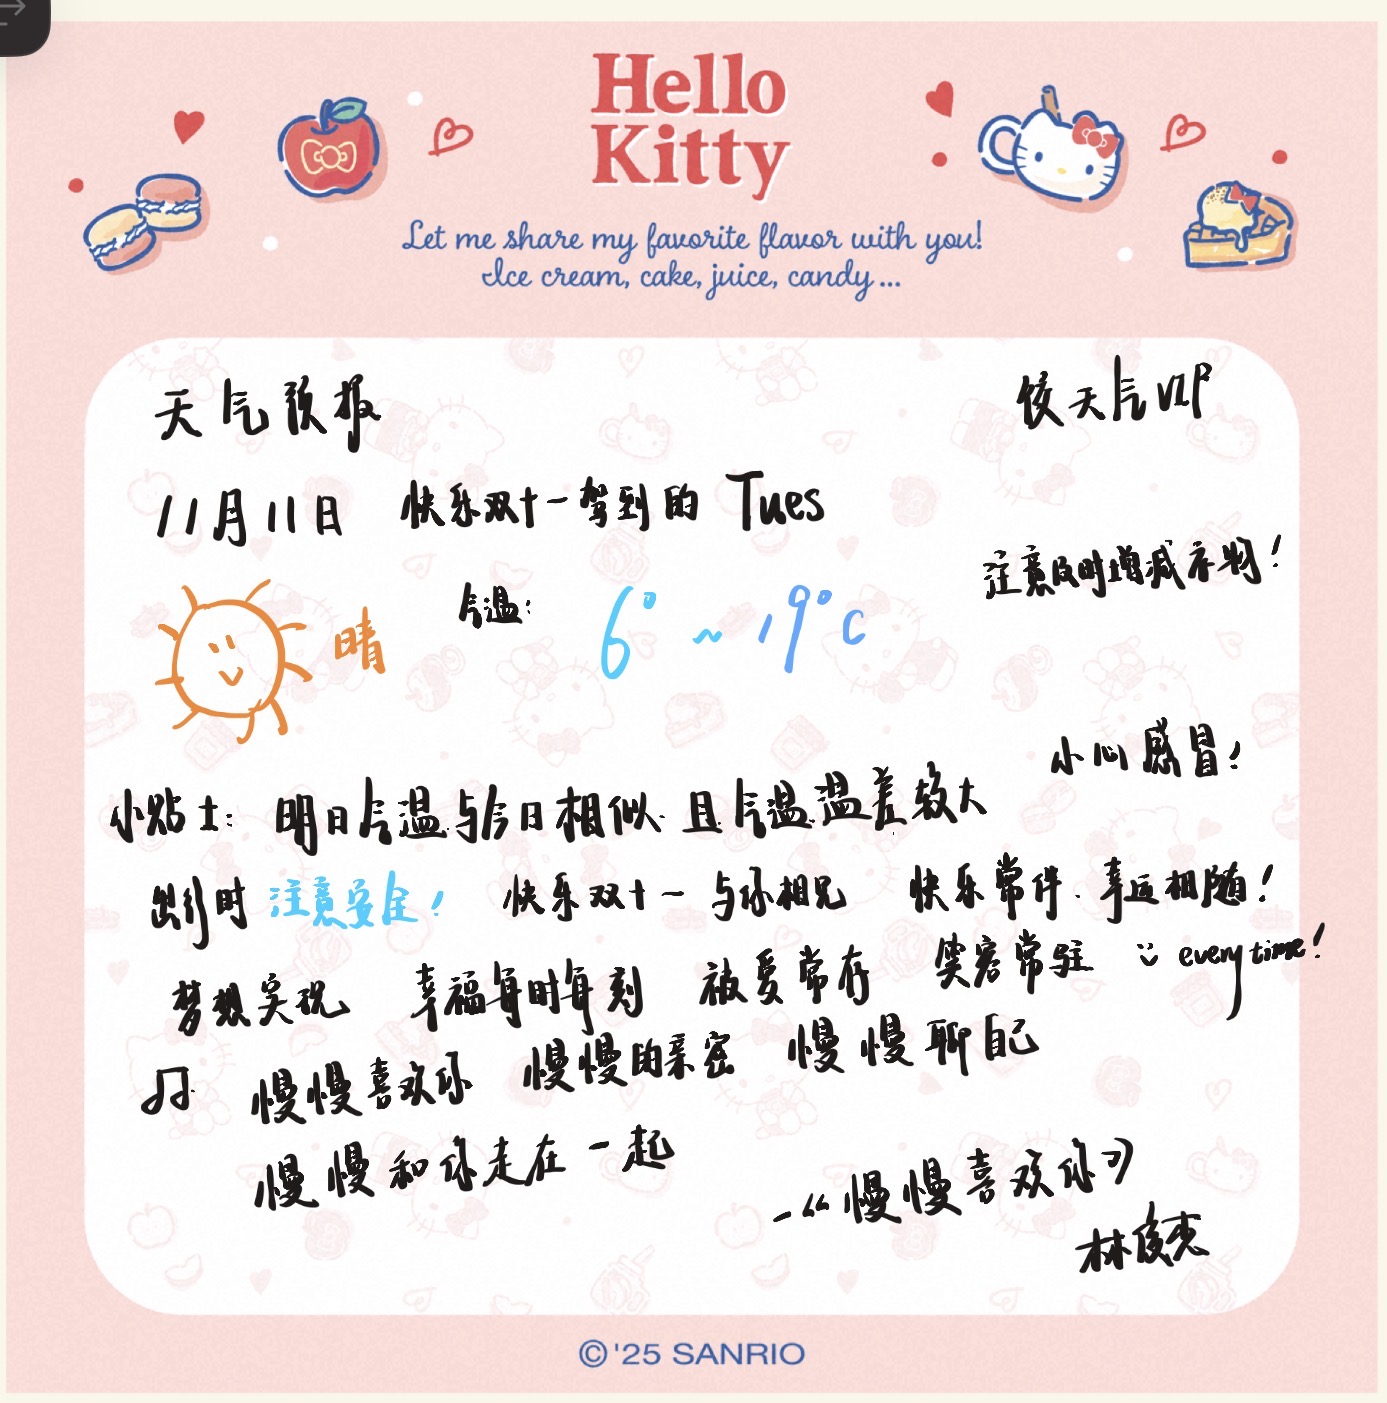 Hello
Kitty
Let me share my favorite flavor with you!
Ice cream, cake, juice, candy...
天气预报
饺天气VIP
11月11日 快乐双十一驾到的 Tues
注意及时增减衣物!
晴 气温: 6° ~ 19°C
小心感冒!
小贴士: 明日气温与今日相似.且气温温差较大
出行时 注意安全! 快乐双十一 与你相见 快乐常伴.幸运相随!
梦想实现 幸福每时每刻 被爱常存 笑容常驻 everytime!
慢慢喜欢你 慢慢的亲密 慢慢聊自己
慢慢和你走在一起
—《慢慢喜欢你》
林俊杰
©'25 SANRIO